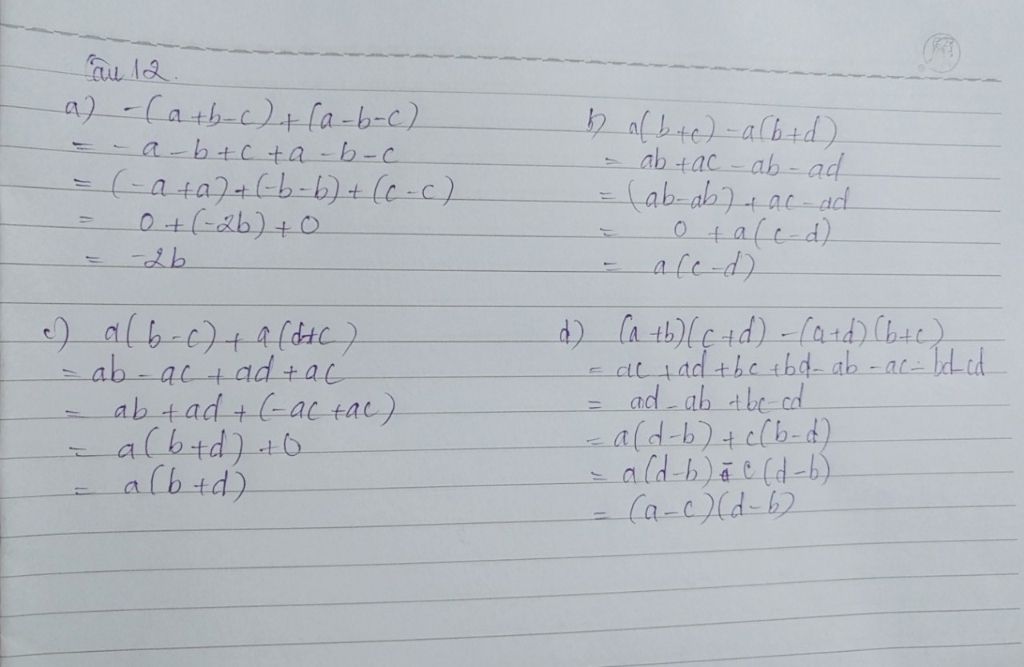 Câu 12.
a) -(a+b-c)+(a-b-c)
= -a-b+c+a-b-c
= (-a+a)+(-b-b)+(c-c)
= 0+(-2b)+0
= -2b
b) a(b+c)-a(b+d)
= ab+ac-ab-ad
= (ab-ab)+ac-ad
= 0+a(c-d)
= a(c-d)
c) a(b-c)+a(d+c)
= ab-ac+ad+ac
= ab+ad+(-ac+ac)
= a(b+d)+0
= a(b+d)
d) (a+b)(c+d)-(a+d)(b+c)
= ac+ad+bc+bd-ab-ac-bd-cd
= ad-ab+bc-cd
= a(d-b)+c(b-d)
= a(d-b)-c(d-b)
= (a-c)(d-b)